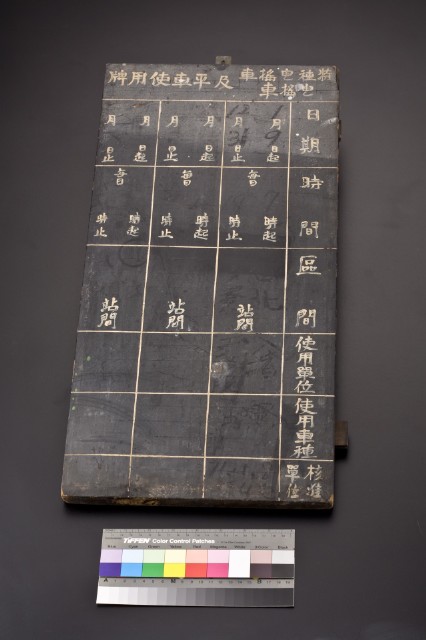 種 搖車
搖車
及平車使用牌
日期
月日起 月日止
月日起 月日止
月日起 月日止
時間
每日 時起 時止
每日 時起 時止
每日 時起 時止
區間
站間
站間
站間
使用單位
使用車種
核准單位
TIFFEN Color Control Patches